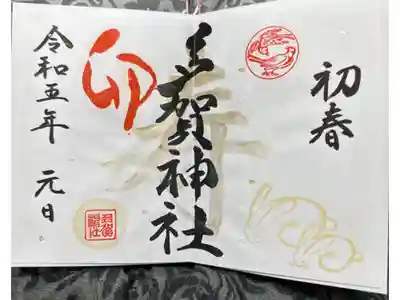 初春
志賀神社
卯
令和五年 元日